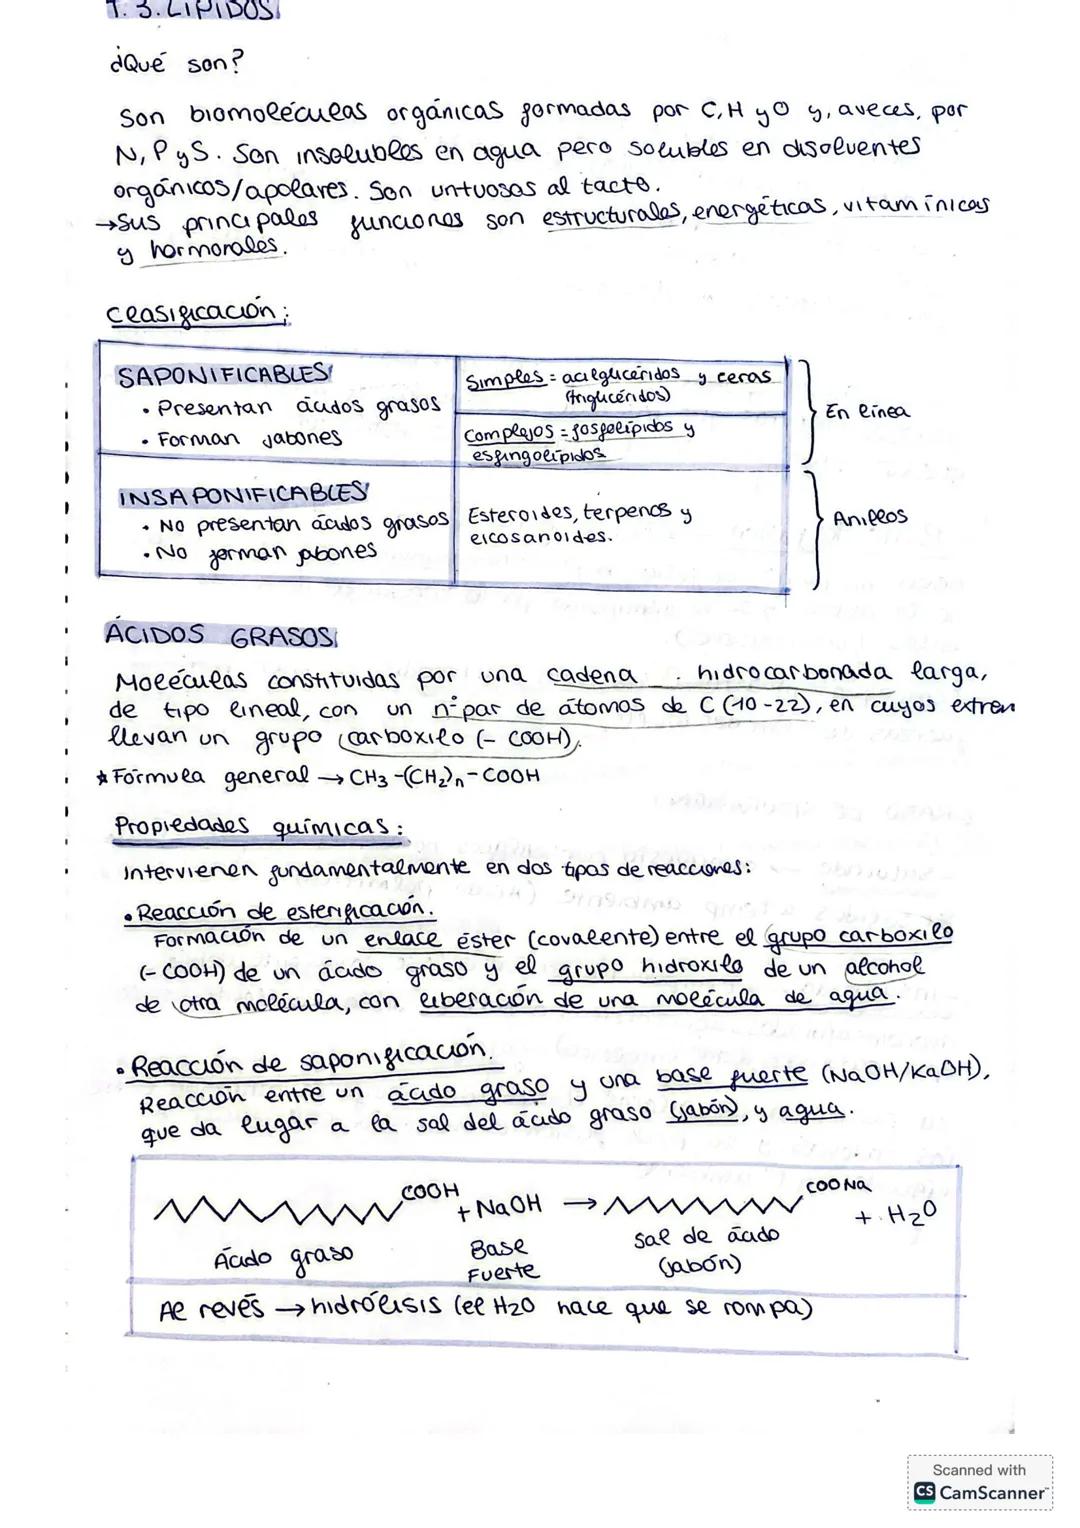 T. 3. LÍPIDOS
¿Qué son?
Son biomoléculas orgánicas formadas por C, H y O y, aveces, por
N, P y S. Son insolubles en agua pero solubles en disolventes
orgánicos/apolares. Son untuosas al tacto.
→Sus principales funciones son estructurales, energéticas, vitamínicas
y hormonales.
Clasificación:
SAPONIFICABLES
• Presentan ácidos grasos
• Forman jabones
Simples = acilglicéridos y ceras
(triglicéridos)
Complejos = fosfolípidos y
esfingolípidos
En línea
INSAPONIFICABLES
• No presentan ácidos grasos
• No forman jabones
Esteroides, terpenos y
eicosanoides.
Anillos
ÁCIDOS GRASOS
Moléculas constituidas por una cadena hidrocarbonada larga,
de tipo lineal, con un nº par de átomos de C (10-22), en cuyos extrem
llevan un grupo carboxilo (- COOH).
* Fórmula general → CH3 -(CH2)n - COOH
Propiedades químicas:
Intervienen fundamentalmente en dos tipos de reacciones:
• Reacción de esterificación.
Formación de un enlace éster (covalente) entre el grupo carboxilo
(- COOH) de un ácido graso y el grupo hidroxilo de un alcohol
de otra molécula, con liberación de una molécula de agua.
• Reacción de saponificación.
Reacción entre un ácido graso y una base fuerte (NaOH/KaOH),
que da lugar a la sal del ácido graso (jabón), y agua.
COOH + NaOH → COONa + H2O
Ácido graso Base Fuerte sal de ácido (jabón)
Al revés → hidrólisis (el H2O hace que se rompa)
Scanned with
CS CamScanner